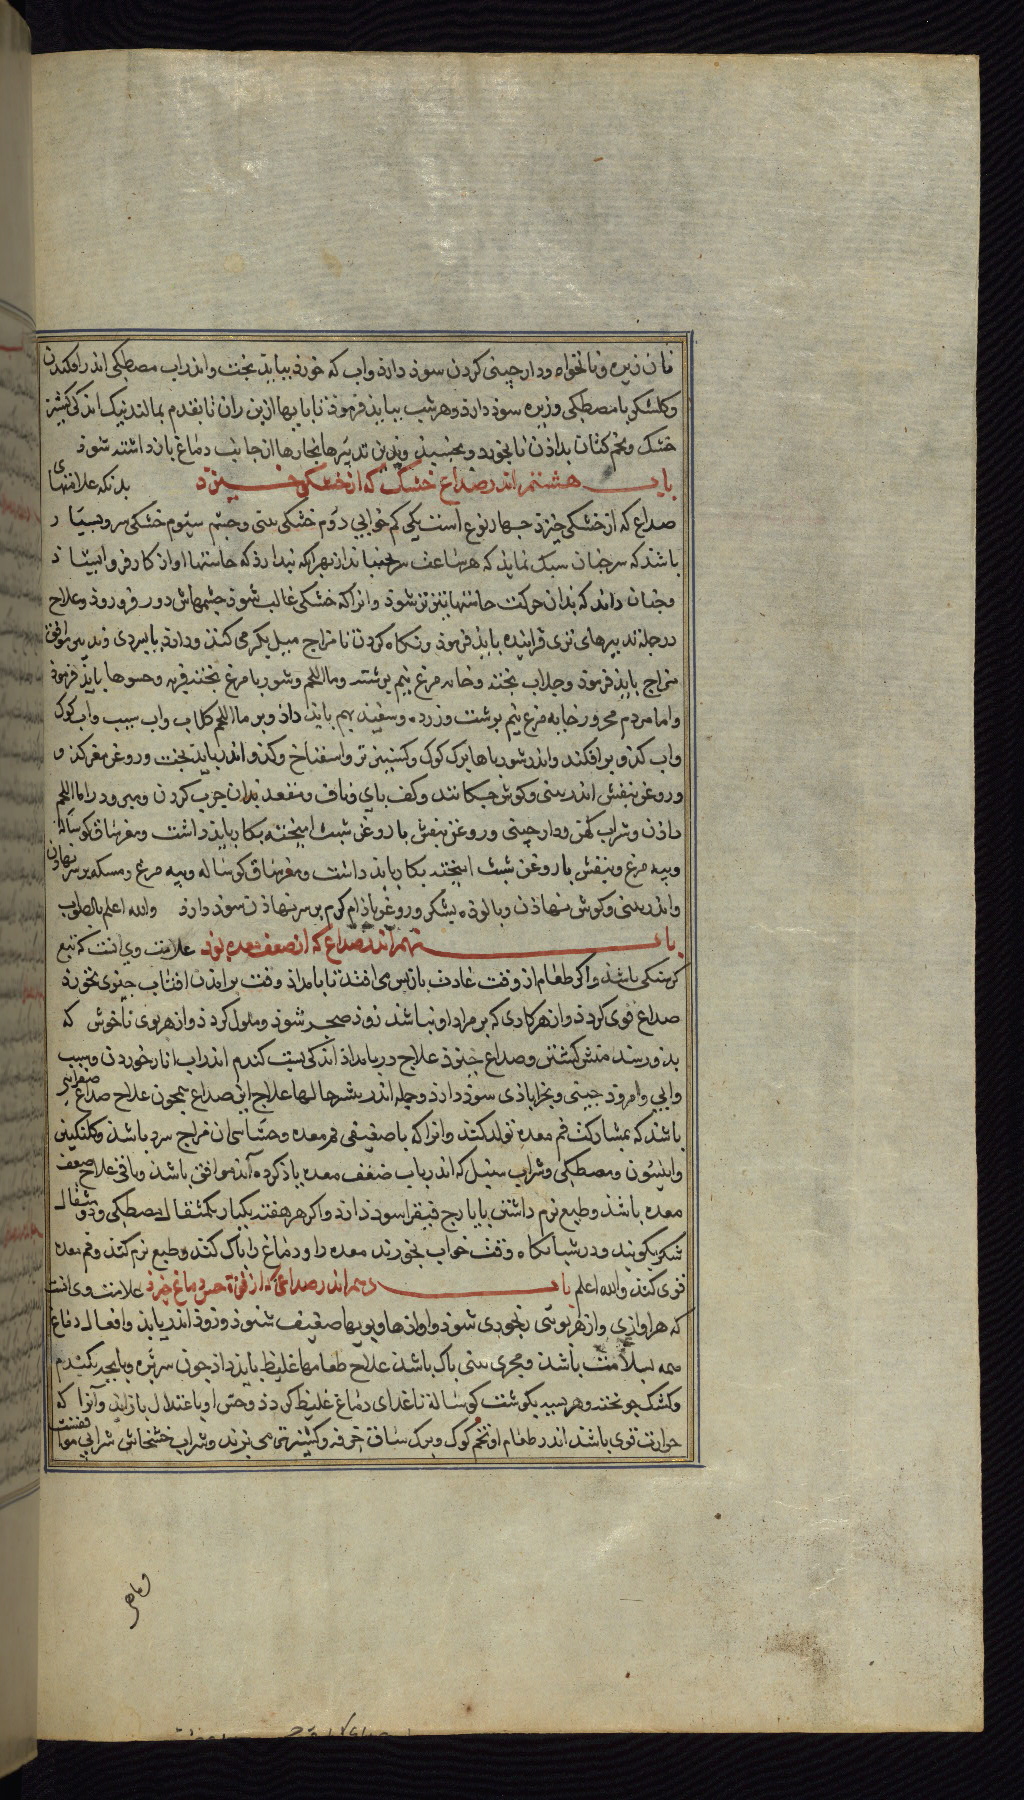 نان زیره و نانخواه و دارچینی کردن سوذ دارذ و اب که خورذ بباید پخت و اندر اب مصطکی اندر افکندن
و کلشکر با مصطکی و زیره سوذ دارذ و هر شب بباید فرموذ تا پایها از بن ران تا بقدم بمالند نیک اندکی کشنیز
خشک و تخم کتان بداذن تا بخورد و بخسبد و بدین تدبیرها بخارها از جانب دماغ بازداشته شوذ
باب هشتم اندر صداع خشک که از خشکی خیزد بدانکه علامتهای
صداع که از خشکی خیزذ چهار نوع است یکی کم خوابی دوم خشکی بینی و چشم سیوم خشکی سر و بسیار
باشد که سر چنان سبک نماید که هر ساعت سر بجنباند از بهر انکه پندارذ که حاستها او از کار فرو ایستاذ
و چنان داند که بدان حرکت حاستها تیزتر شوذ و انرا که خشکی غالب شوذ چشمهاش دور فرو روذ و علاج
در جمله تدبیرهای تری فزاینده باید فرموذ و نکاه کردن تا مزاج میل بکرمی کنذ و دارذ یا بسردی و تدبیر موافق
مزاج باید فرموذ و جلاب پخته و خایه مرغ نیم برشت و ماء اللحم و شوربا مرغ پخته فربه و حسوها باید فرموذ
و اما مردم محرور خایه مرغ نیم برشت و زرده و سفیده بهم باید داذ و بر ماء اللحم کلاب و اب سیب و اب کوک
و اب کذو بر افکند و اندر شورباها برک کوک و کشنیز تر و اسفناخ و کذو اندر باید پخت و روغن مغز کذو
و روغن بنفش اندر بینی و کوش چکانند و کف پای و ناف و مقعد بدان چرب کردن و مبرود را ماء اللحم
داذن و شراب کهن و دارچینی و روغن بنفش با روغن شبت امیخته بکار باید داشت و مغز ساق کوساله
و پیه مرغ و بنفش با روغن شبث امیخته بکار باید داشت و مغز ساق کوساله و پیه مرغ و مسکه بر سر نهاذن
و اندر بینی و کوش نهاذن و پالوذه بشکر و روغن باذام کرم بر سر نهاذن سوذ دارذ والله اعلم بالصواب
باب نهم اندر صداع که از ضعف معده بوذ علامت وی انست که تبع
کرسنکی باشذ و اکر طعام از وقت عادت بازپس می افتد تا بامداذ وقت برامدن افتاب چیزی نخورذ
صداع قوی کردذ و از هر کاری که بر مراد او نباشد زوذ ضجر شوذ و ملول کردذ و از هر بوی ناخوش که
بدو رسد منش کشتن و صداع خیزد علاج هر بامداذ اندکی پست کندم اندر اب انار خوردن و سیب
و ابی و امروذ چینی و بخراباذی سوذ دارذ و جمله اندر بیشتر حالها علاج این صداع همچون علاج صداع صفرایی
باشذ که بمشارکت فم معده تولد کنذ و انرا که با ضعیفی فم معده و حساسی ان مزاج سرد باشذ و کلنکبین
و انیسون و مصطکی و شراب سنبل که اندر باب ضعف معده یاذ کرده آید موافق باشذ و باقی علاج ضعف
معده باشذ و طبع نرم داشتن بایارج فیقرا سوذ دارذ و اکر هر هفته یکبار یکمثقال مصطکی و دو مثقال
شکر بکوبند و در شبانکاه وقت خواب بخورند معده را و دماغ را پاک کنذ و طبع نرم کنذ و فم معده
قوی کنذ والله اعلم باب دهم اندر صداعی که از قوة حس دماغ خیزذ علامت وی انست
که هر اوازی و از هر بویی رنجوری شوذ و اوازها و بویها ضعیف شنوذ و زوذ اندر یابذ و افعال دماغ
همه بسلامت باشذ و مجری بینی پاک باشذ علاج طعامها غلیظ بایذ داذ چون سر بره و پاچه بکندم
و کشک جو پخته و هریسه بکوشت کوساله تا غذای دماغ غلیظ کردذ و حس او باعتدال باز ایذ و آنرا که
حرارت قوی باشذ اندر طعام او تخم کوک و برک ساق خرفه و کشنیز تر می پزند و شراب خشخاش شرابی موافقست
و ماهی